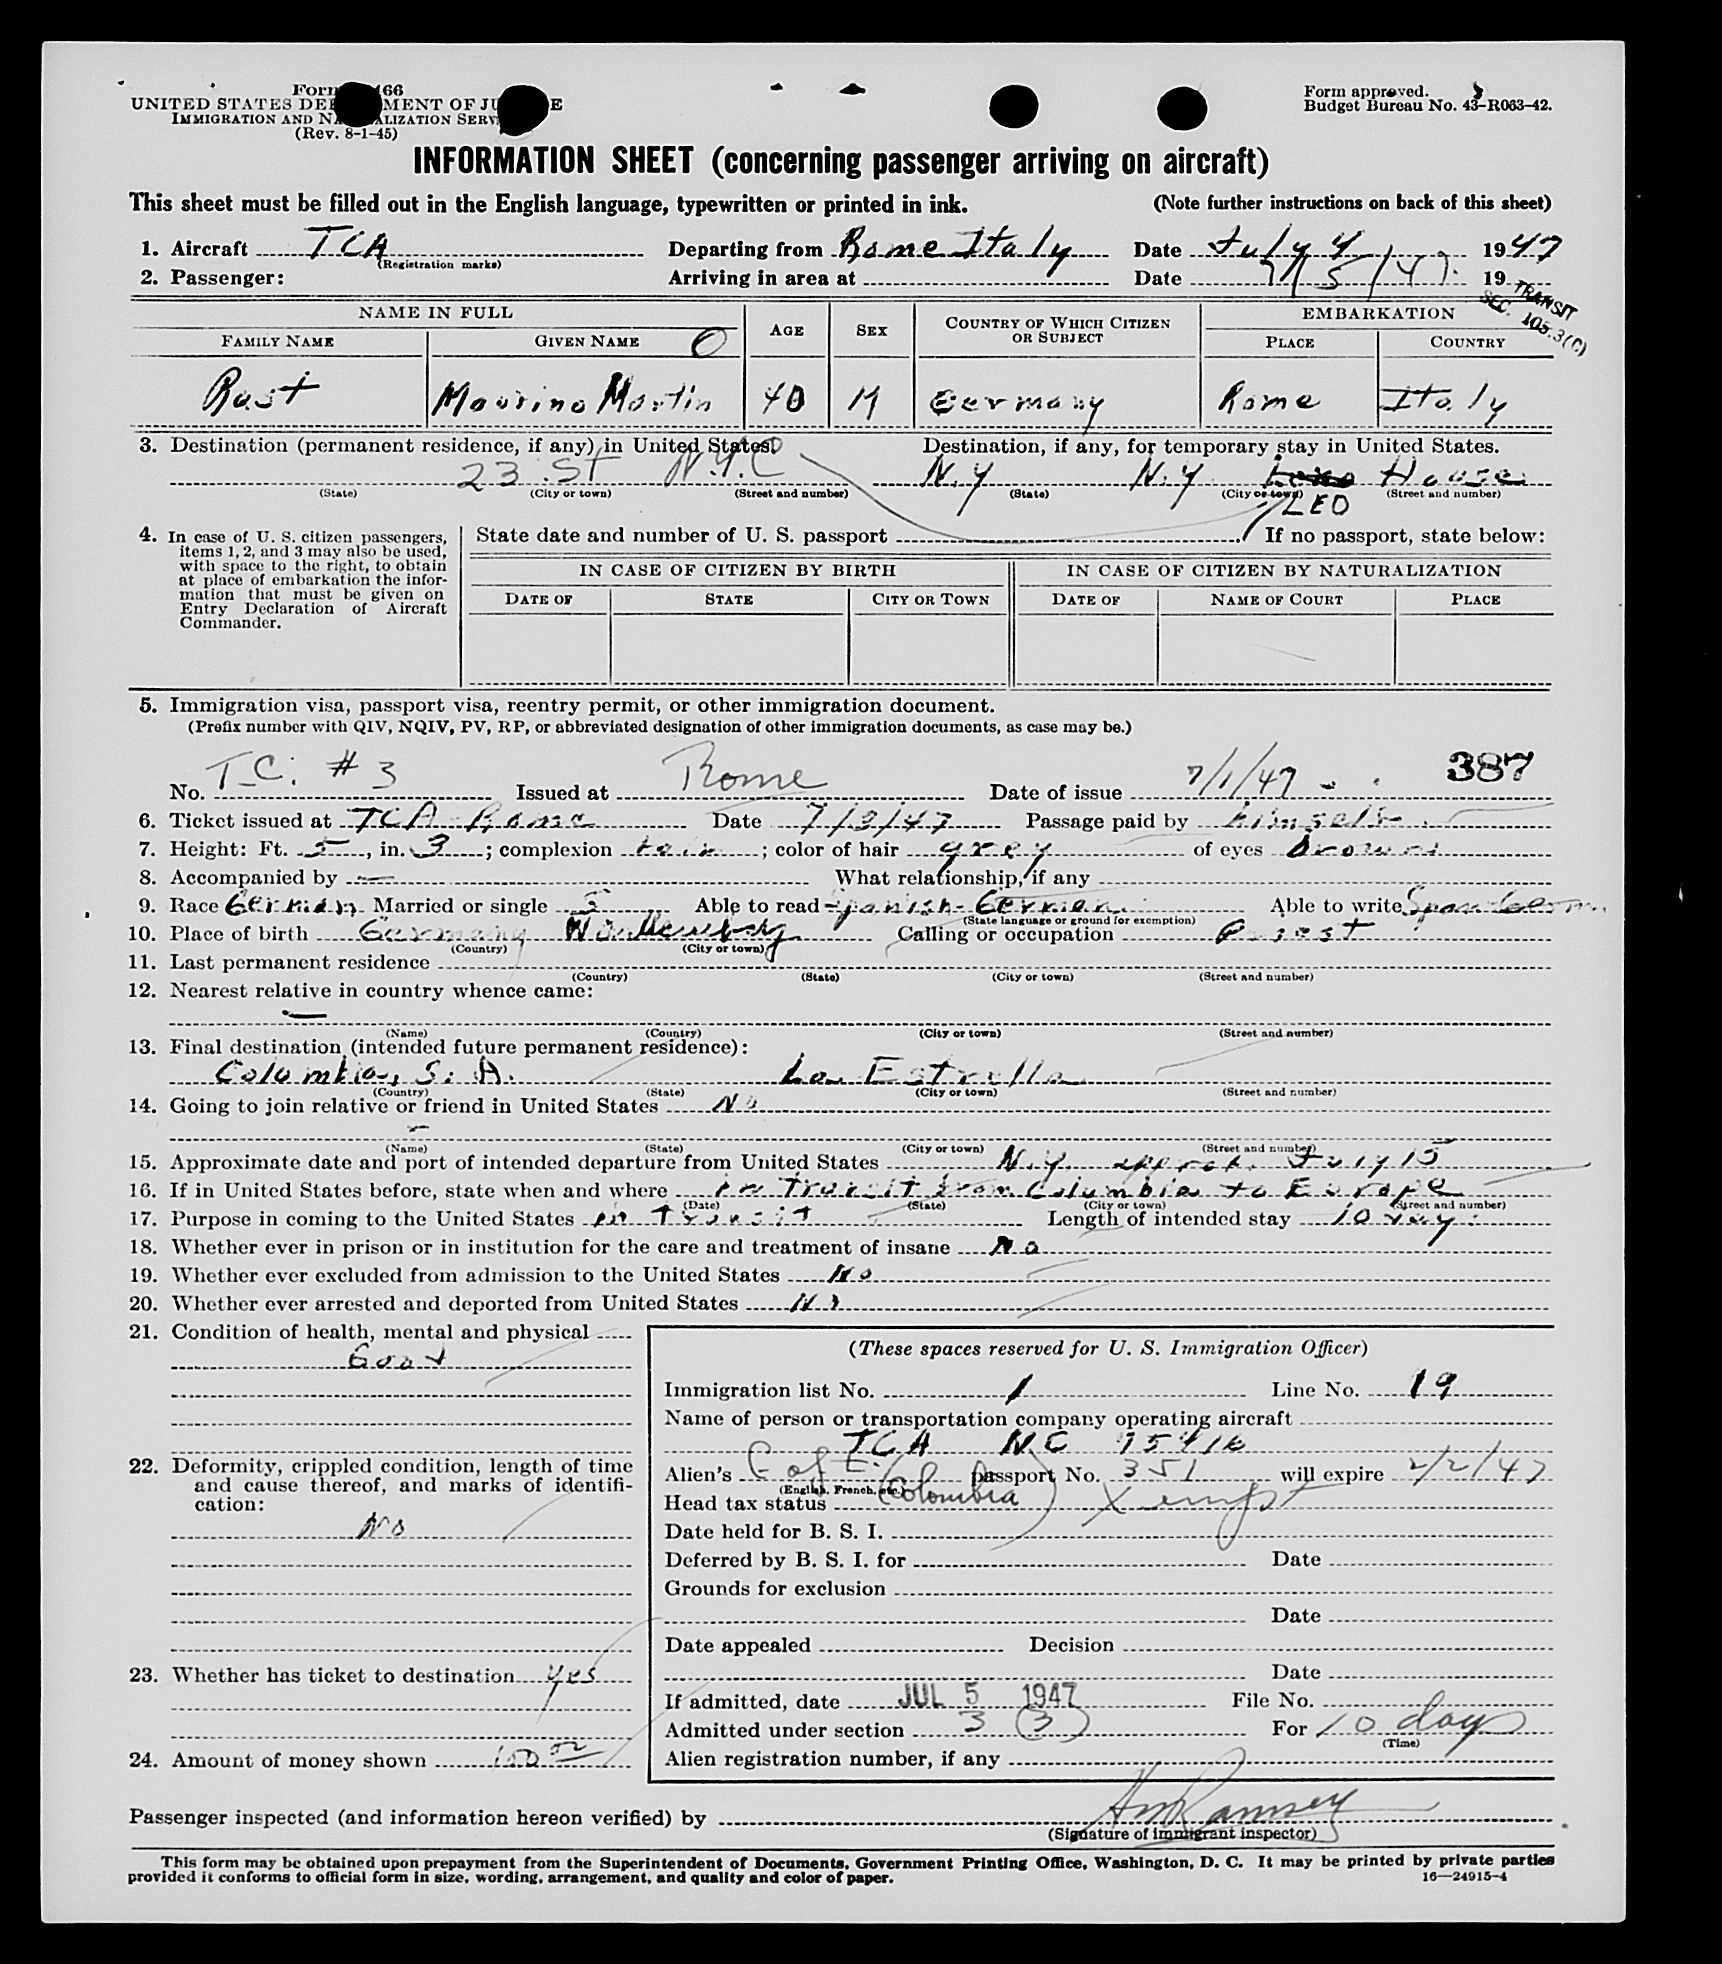 Form 466
UNITED STATES DEPARTMENT OF JUSTICE
IMMIGRATION AND NATURALIZATION SERVICE
(Rev. 8-1-45)
Form approved.
Budget Bureau No. 43-R063-42.
INFORMATION SHEET (concerning passenger arriving on aircraft)
This sheet must be filled out in the English language, typewritten or printed in ink. (Note further instructions on back of this sheet)
1. Aircraft TCA Departing from Rome Italy Date July 4 1947
(Registration marks)
2. Passenger: Arriving in area at Date 7/5/47. 19
TRANSIT
SEC. 105.3(C)
NAME IN FULL AGE SEX COUNTRY OF WHICH CITIZEN OR SUBJECT EMBARKATION
FAMILY NAME GIVEN NAME PLACE COUNTRY
Rast Maurino Martin 40 M Germany Rome Italy
3. Destination (permanent residence, if any) in United States. Destination, if any, for temporary stay in United States.
23 St N.Y.C N.Y N.Y. House
(State) (City or town) (Street and number) (State) (City or town) (Street and number)
LEO
4. In case of U. S. citizen passengers, items 1, 2, and 3 may also be used, with space to the right, to obtain at place of embarkation the information that must be given on Entry Declaration of Aircraft Commander.
State date and number of U. S. passport If no passport, state below:
IN CASE OF CITIZEN BY BIRTH IN CASE OF CITIZEN BY NATURALIZATION
DATE OF STATE CITY OR TOWN DATE OF NAME OF COURT PLACE
5. Immigration visa, passport visa, reentry permit, or other immigration document.
(Prefix number with QIV, NQIV, PV, RP, or abbreviated designation of other immigration documents, as case may be.)
387
No. T.C. # 3 Issued at Rome Date of issue 7/1/47
6. Ticket issued at TCA Rome Date 7/3/47 Passage paid by himself
7. Height: Ft. 5, in. 3; complexion fair; color of hair grey of eyes brown
8. Accompanied by — What relationship, if any
9. Race German Married or single S Able to read Spanish-German Able to write Span German
(State language or ground for exemption)
10. Place of birth Germany Calling or occupation Priest
(Country) (City or town)
11. Last permanent residence
(Country) (State) (City or town) (Street and number)
12. Nearest relative in country whence came:
—
(Name) (Country) (City or town) (Street and number)
13. Final destination (intended future permanent residence):
Columbia, S. A. La Estrella
(Country) (State) (City or town) (Street and number)
14. Going to join relative or friend in United States No
—
(Name) (State) (City or town) (Street and number)
15. Approximate date and port of intended departure from United States N.Y. approx. July 15
16. If in United States before, state when and where in transit from Columbia to Europe
(Date) (State) (City or town) (Street and number)
17. Purpose in coming to the United States in transit Length of intended stay 10 day
18. Whether ever in prison or in institution for the care and treatment of insane No
19. Whether ever excluded from admission to the United States No
20. Whether ever arrested and deported from United States No
21. Condition of health, mental and physical
Good
22. Deformity, crippled condition, length of time and cause thereof, and marks of identification:
No
23. Whether has ticket to destination yes
24. Amount of money shown 100.00
(These spaces reserved for U. S. Immigration Officer)
Immigration list No. 1 Line No. 19
Name of person or transportation company operating aircraft
TCA NC 75416
Alien's C of I. (Colombia) passport No. 351 will expire 2/2/47
(English, French, etc.)
Head tax status Xempt
Date held for B. S. I.
Deferred by B. S. I. for Date
Grounds for exclusion
Date
Date appealed Decision
Date
If admitted, date JUL 5 1947 File No.
Admitted under section 3 (3) For 10 days
(Time)
Alien registration number, if any
Passenger inspected (and information hereon verified) by Ramsey
(Signature of immigrant inspector)
This form may be obtained upon prepayment from the Superintendent of Documents, Government Printing Office, Washington, D. C. It may be printed by private parties
provided it conforms to official form in size, wording, arrangement, and quality and color of paper. 16—24915-4